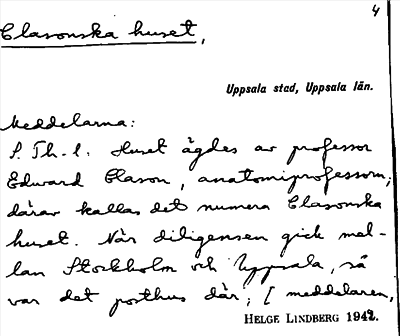 4
Clasonska huset,
Uppsala stad, Uppsala län.
Meddelarna:
S. Th-l. Huset ägdes av professor
Edward Clason, anatomiprofessorn;
därav kallas det numera Clasonska
huset. När diligensen gick mel-
lan Stockholm och Uppsala, så
var det posthus där; [ meddelaren,
HELGE LINDBERG 1942.